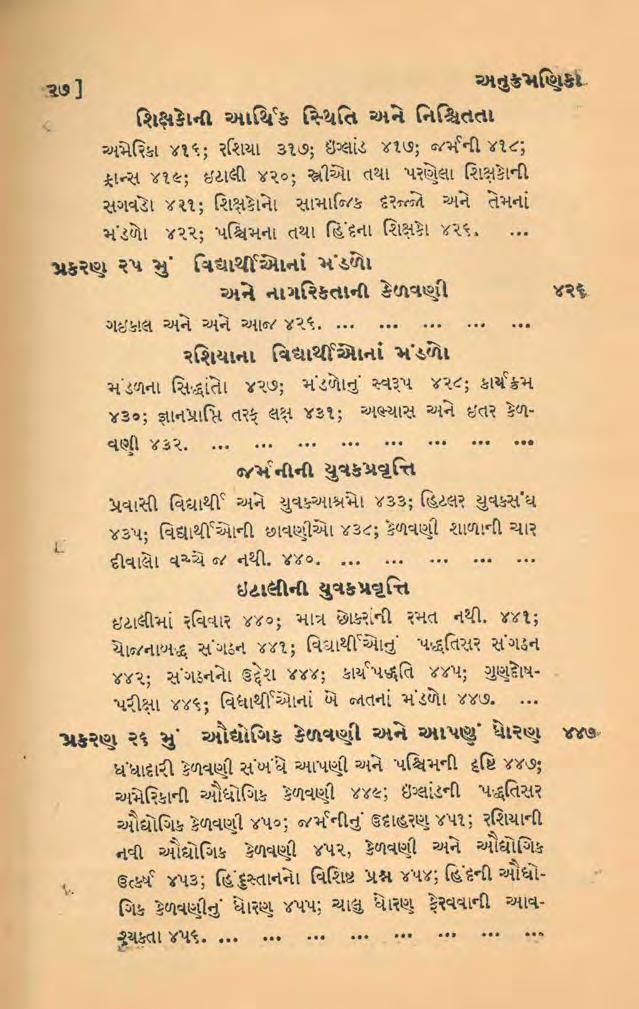 ૨૭ ] અનુક્રમણિકા
શિક્ષકોની આર્થિક સ્થિતિ અને નિશ્ચિતતા
અમેરિકા ૪૧૬; રશિયા ૩૧૭; ઇંગ્લાંડ ૪૧૭; જર્મની ૪૧૮;
ફ્રાન્સ ૪૧૯; ઇટાલી ૪૨૦; સ્ત્રીઓ તથા પરણેલા શિક્ષકોની
સગવડો ૪૨૧; શિક્ષકોનો સામાજિક દરજ્જો અને તેમનાં
મંડળો ૪૨૨; પશ્ચિમના તથા હિંદના શિક્ષકો ૪૨૬. ...
પ્રકરણ ૨૫ મું વિદ્યાર્થીઓનાં મંડળો
અને નાગરિકતાની કેળવણી ૪૨૬
ગઇકાલ અને અને આજ ૪૨૬. ... ... ... ... ...
રશિયાના વિદ્યાર્થીઓનાં મંડળો
મંડળના સિદ્ધાંતો ૪૨૭; મંડળોનું સ્વરૂપ ૪૨૮; કાર્યક્રમ
૪૩૦; જ્ઞાનપ્રાપ્તિ તરફ લક્ષ ૪૩૧; અભ્યાસ અને ઇતર કેળ-
વણી ૪૩૨. ... ... ... ... ... ... ... ...
જર્મનીની યુવકપ્રવૃત્તિ
પ્રવાસી વિદ્યાર્થી અને યુવકઆશ્રમો ૪૩૩; હિટલર યુવકસંઘ
૪૩૫; વિદ્યાર્થીઓની છાવણીઓ ૪૩૮; કેળવણી શાળાની ચાર
દીવાલો વચ્ચે જ નથી. ૪૪૦. ... ... ... ... ...
ઇટાલીની યુવકપ્રવૃત્તિ
ઇટાલીમાં રવિવાર ૪૪૦; માત્ર છોકરાંની રમત નથી. ૪૪૧;
યોજનાબદ્ધ સંગઠન ૪૪૧; વિદ્યાર્થીઓનું પદ્ધતિસર સંગઠન
૪૪૨; સંગઠનનો ઉદ્દેશ ૪૪૪; કાર્યપદ્ધતિ ૪૪૫; ગુણદોષ-
પરીક્ષા ૪૪૬; વિદ્યાર્થીઓનાં બે જાતનાં મંડળો ૪૪૭. ...
પ્રકરણ ૨૬ મું ઔદ્યોગિક કેળવણી અને આપણું ધોરણ ૪૪૭
ધંધાદારી કેળવણી સંબંધે આપણી અને પશ્ચિમની દૃષ્ટિ ૪૪૭;
અમેરિકાની ઔદ્યોગિક કેળવણી ૪૪૯; ઇંગ્લાંડની પદ્ધતિસર
ઔદ્યોગિક કેળવણી ૪૫૦; જર્મનીનું ઉદાહરણ ૪૫૧; રશિયાની
નવી ઔદ્યોગિક કેળવણી ૪૫૨, કેળવણી અને ઔદ્યોગિક
ઉત્કર્ષ ૪૫૩; હિંદુસ્તાનનો વિશિષ્ટ પ્રશ્ન ૪૫૪; હિંદની ઔદ્યો-
ગિક કેળવણીનું ધોરણ ૪૫૫; ચાલુ ધોરણ ફેરવવાની આવ-
શ્યકતા ૪૫૬. ... ... ... ... ... ... ... ...